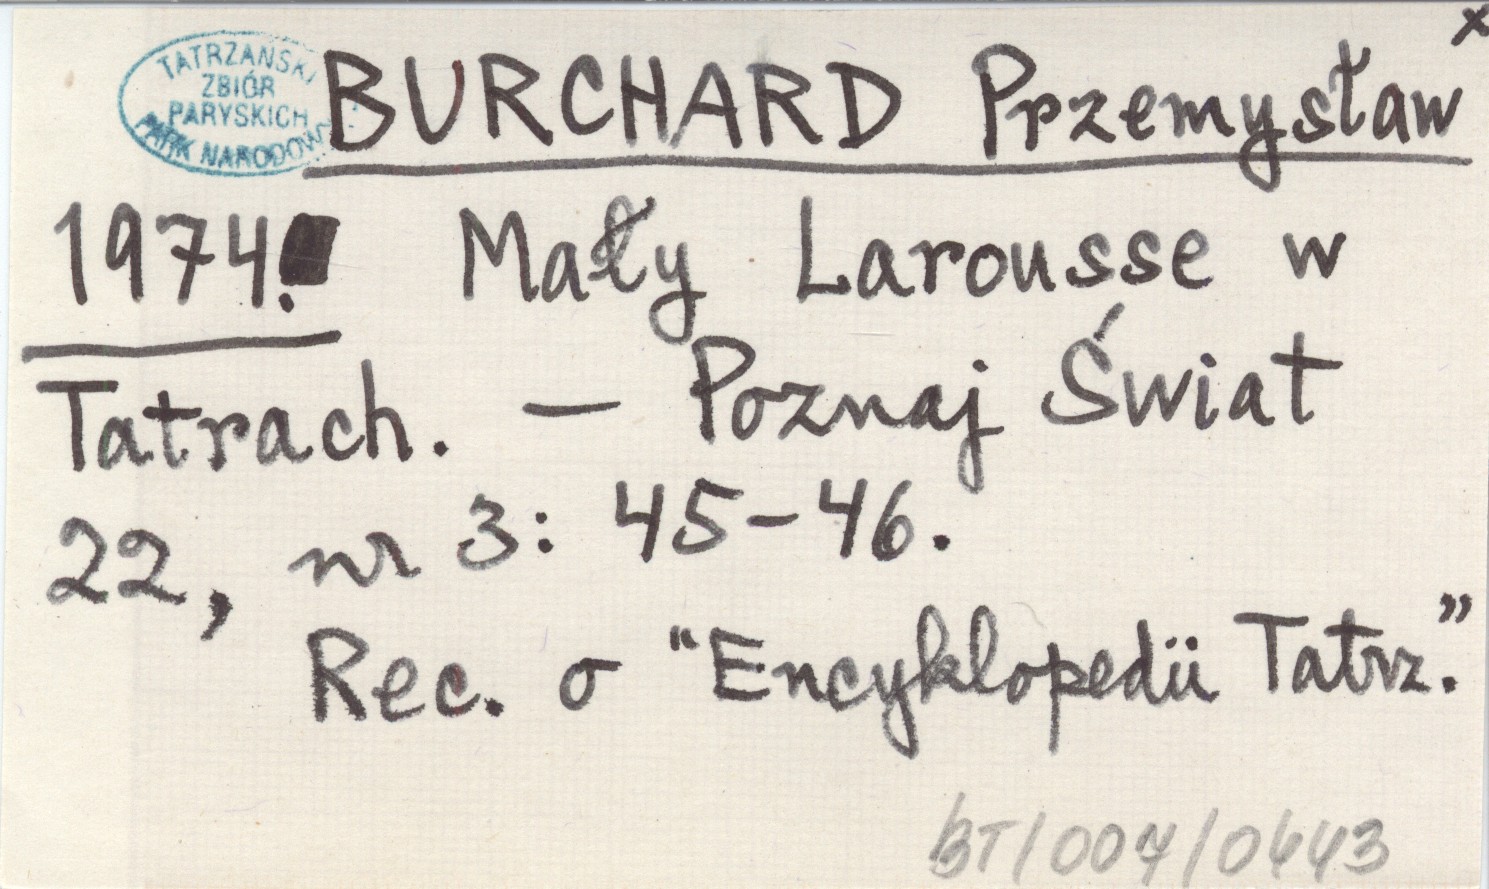 x
TATRZAŃSKI
ZBIÓR
PARYSKICH
PARK NARODOWY
BURCHARD Przemysław
1974. Mały Larousse w
Tatrach. — Poznaj Świat
22, nr 3: 45-46.
Rec. o "Encyklopedii Tatrz."
BT/004/0443